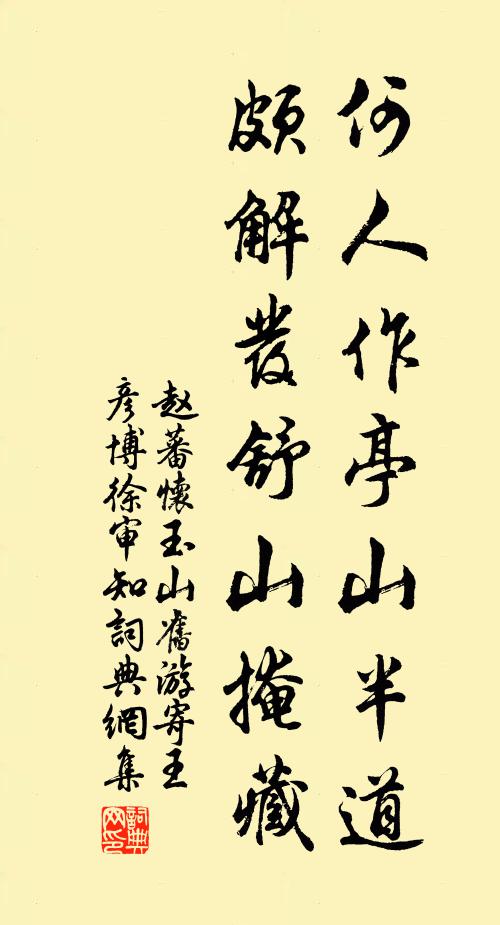 何人作亭山半道
頗解發舒山掩藏
赵蕃懷玉山舊游寄王
彦博徐审知詞典網集
詞典
网印